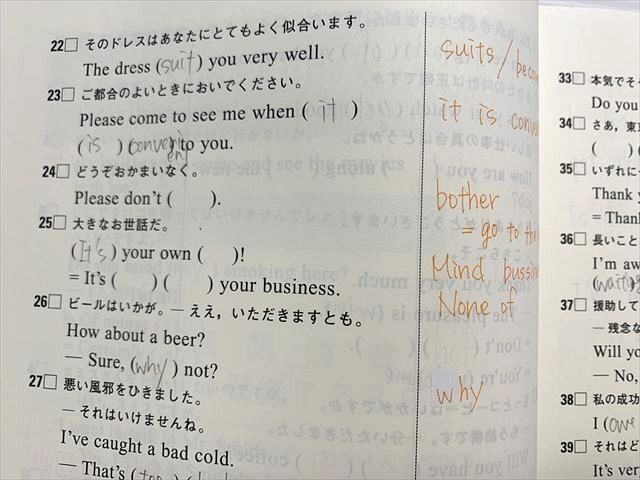 22□ そのドレスはあなたにとてもよく似合います。
The dress (suit) you very well.
23□ ご都合のよいときにおいでください。
Please come to see me when ( it )
( is ) (conveni
ent) to you.
24□ どうぞおかまいなく。
Please don't ( ).
25□ 大きなお世話だ。
(It's) your own ( )!
= It's ( ) ( ) your business.
26□ ビールはいかが。— ええ，いただきますとも。
How about a beer?
— Sure, (why) not?
27□ 悪い風邪をひきました。
— それはいけませんね。
I've caught a bad cold.
— That's (too)
suits/
it is
bother
= go to
Mind
None of
why
33□ 本気でそ
Do you
34□ さあ，東
( )
35□ いずれに
Thank y
= Than
36□ 長いこと
I'm aw
37□ 援助して
— 残念な
Will yo
— No,
38□ 私の成功
I (owe
39□ それはど
It's ver